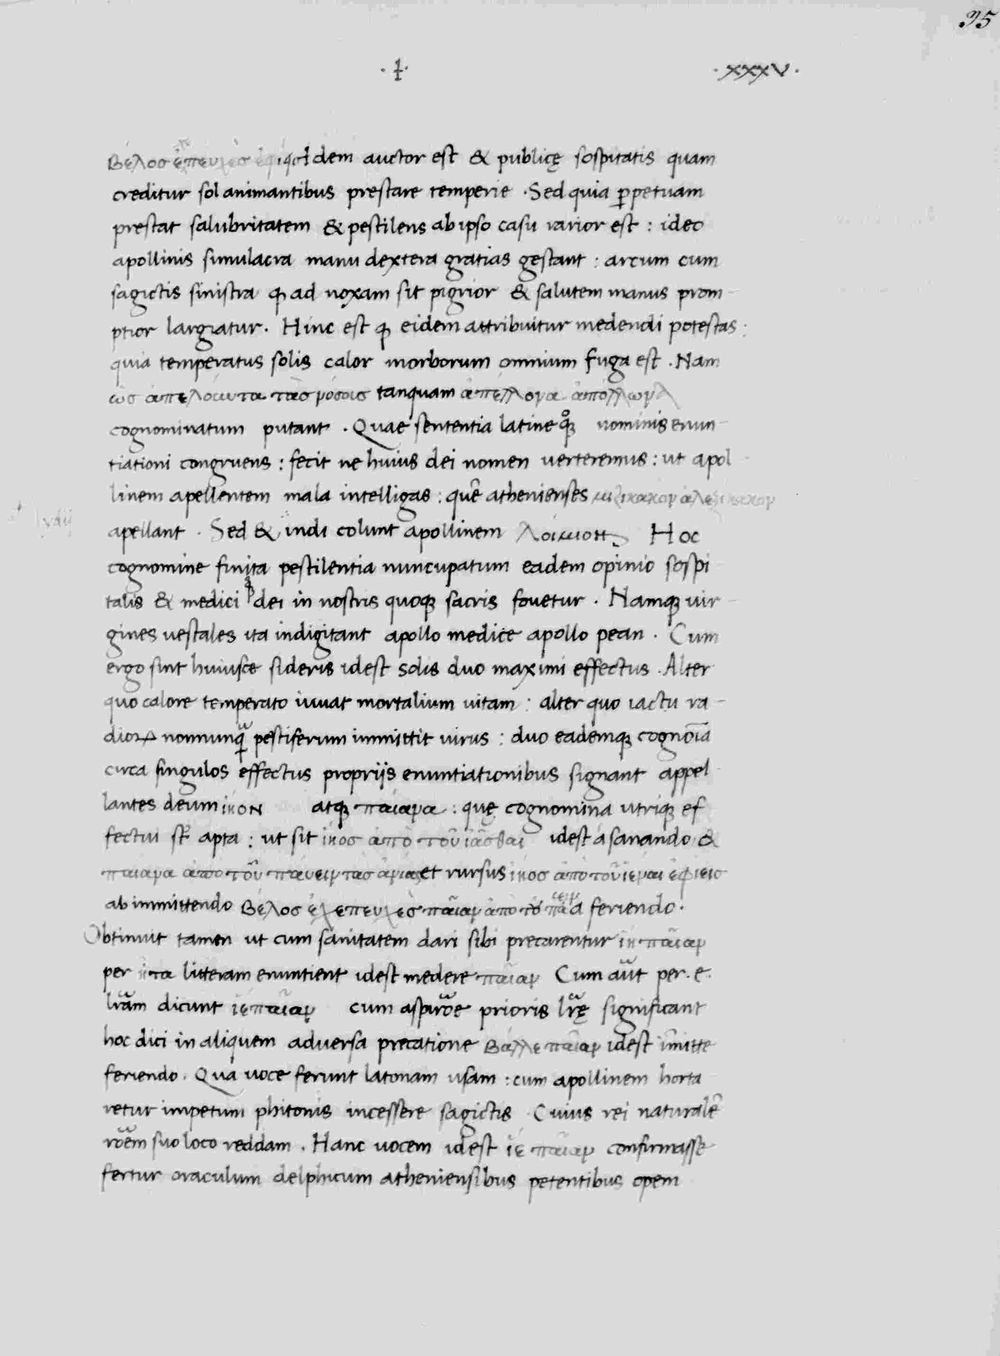 35
· I · · xxxv ·
Βέλος ἐπευκὲς idem auctor est & publicę sospitatis quam
creditur sol animantibus prestare temperie . Sed quia ꝑpetuam
prestat salubritatem & pestilens ab ipso casu rarior est : ideo
apollinis simulacra manu dextera gratias gestant : arcum cum
sagictis sinistra ꝙ ad noxam sit pigrior & salutem manus prom-
ptior largiatur . Hinc est ꝙ eidem attribuitur medendi potestas :
quia temperatus solis calor morborum omnium fuga est . Nam
ὡς ἀπελοῦντα τὰσ νόσοισ tanquam ἀπέλλονα ἀπόλλωνα
cognominatum putant . Quae sententia latine qͦꝫ nominis enun-
tiationi congruens : fecit ne huius dei nomen verteremus : ut apol-
linem apellentem mala intelligas : quē athenienses ἀλεξίκακον
apellant . Sed & indi colunt apollinem λοίμιον Hoc
cognomine finita pestilentia nuncupatum eadem opinio sospi
talis & medici dei in nostris quoqꝫ sacris fovetur . Namqꝫ vir-
gines vestales ita indigitant apollo medice apollo pean . Cum
ergo sint huiusce sideris idest solis duo maximi effectus . Alter
quo calore temperato iuvat mortalium vitam : alter quo iactu ra-
dioꝝ nonnunqᷓ pestiferum immittit virus : duo eademqꝫ cognoīa
circa singulos effectus proprijs enuntiationibus signant appel-
lantes deum ιHΟΝ atqꝫ παιανα : quę cognomina utriqꝫ ef
fectui st̄ apta : ut sit ιHος ἀπὸ τοῦ ἰᾶσθαι idest a sanando &
παιανα ἀπο τοῦ παύειν τὰσ ἀνίας et rursus ιHος ἀπὸ τοῦ ἱέναι ἐφιεισ
ab immittendo Βέλος ἐχεπευκὲς παῖαν ἀπο τοῦ παίειν a feriendo .
Obtinuit tamen ut cum sanitatem dari sibi precarentur ιH παῖαν
per ητα litteram enuntient idest medere παῖαν Cum aūt per . e .
lrām dicunt ἱε παῖαν cum aspirōe prioris lrę significant
hoc dici in aliquem adversa precatione Βάλλε παῖαν idest īmitte
feriendo . Qua voce ferunt latonam usam : cum apollinem horta
retur impetum phitonis incessere sagictis . Cuius rei naturalē
rōem suo loco reddam . Hanc vocem idest ἱὲ παῖαν confirmasse
fertur oraculum delphicum atheniensibus petentibus opem